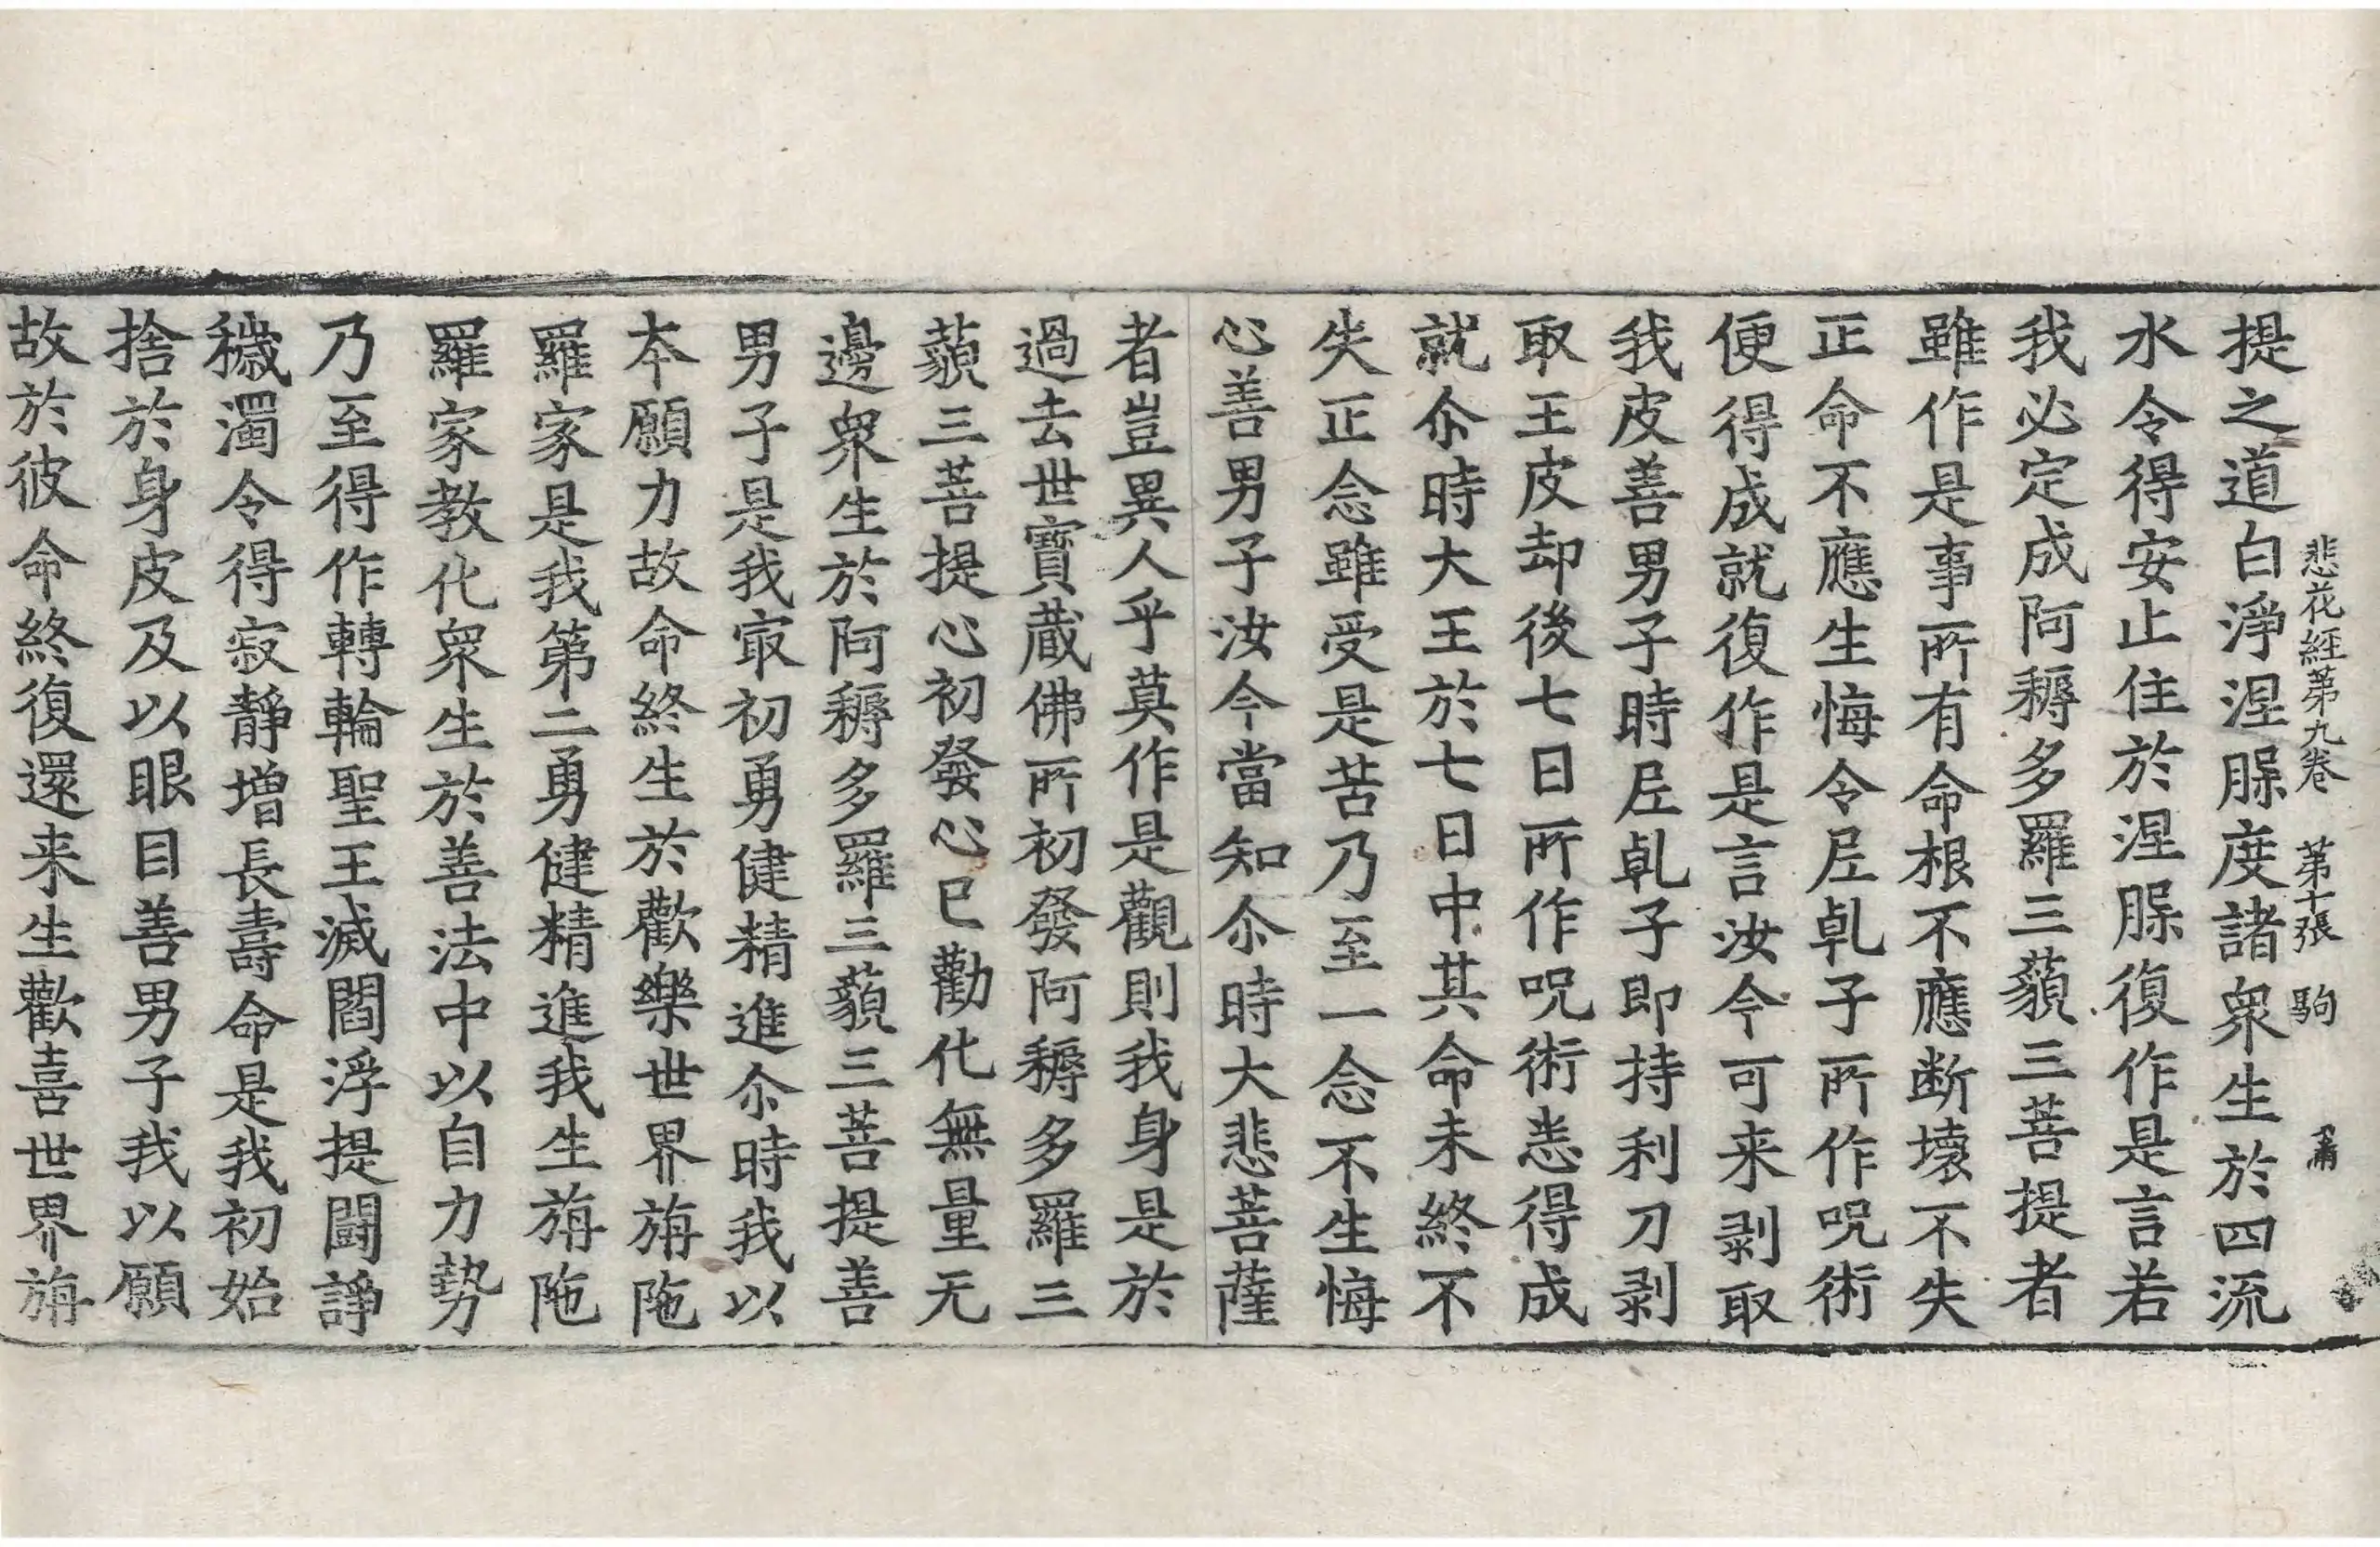 悲花經第九卷 第十張 駒
提之道白淨涅腺度諸衆生於四流
水令得安止住於涅腺復作是言若
我必定成阿耨多羅三藐三菩提者
雖作是事所有命根不應断壞不失
正命不應生悔令𡰱乹子所作呪術
便得成就復作是言汝今可来剥取
我皮善男子時𡰱乹子即持利刀剥
取王皮却後七日所作呪術悉得成
就尒時大王於七日中其命未終不
失正念雖受是苦乃至一念不生悔
心善男子汝今當知尒時大悲菩薩
者豈異人乎莫作是觀則我身是於
過去世寶蔵佛所初發阿耨多羅三
藐三菩提心初發心已勸化無量无
邊衆生於阿耨多羅三藐三菩提善
男子是我㝡初勇健精進尒時我以
本願力故命終生於歡樂世界旃陁
羅家是我第二勇健精進我生旃陁
羅家教化衆生於善法中以自力勢
乃至得作轉輪聖王滅閻浮提鬪諍
穢濁令得寂靜增長壽命是我初始
捨於身皮及以眼目善男子我以願
故於彼命終復還来生歡喜世界旃